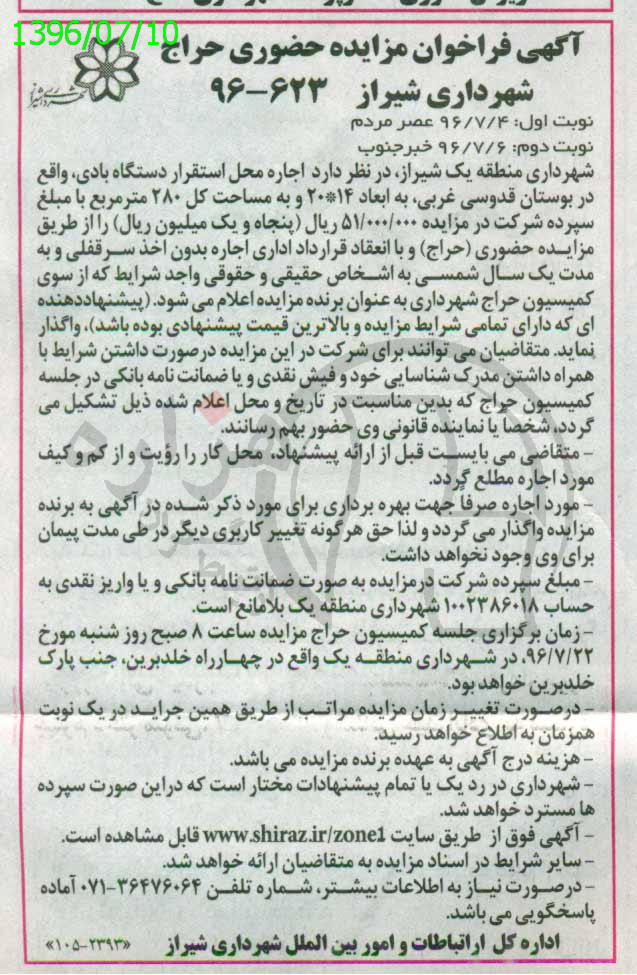 1396/07/10
آگهی فراخوان مزایده حضوری حراج
شهرداری شیراز ۶۲۳-۹۶
شهرداری شیراز
نوبت اول: ۹۶/۷/۴ عصر مردم
نوبت دوم: ۹۶/۷/۶ خبرجنوب
شهرداری منطقه یک شیراز، در نظر دارد اجاره محل استقرار دستگاه بادی، واقع
در بوستان قدوسی غربی، به ابعاد ۱۴*۲۰ و به مساحت کل ۲۸۰ مترمربع با مبلغ
سپرده شرکت در مزایده ۵۱/۰۰۰/۰۰۰ ریال (پنجاه و یک میلیون ریال) را از طریق
مزایده حضوری (حراج) و با انعقاد قرارداد اداری اجاره بدون اخذ سرقفلی و به
مدت یک سال شمسی به اشخاص حقیقی و حقوقی واجد شرایط که از سوی
کمیسیون حراج شهرداری به عنوان برنده مزایده اعلام می شود. (پیشنهاددهنده
ای که دارای تمامی شرایط مزایده و بالاترین قیمت پیشنهادی بوده باشد)، واگذار
نماید. متقاضیان می توانند برای شرکت در این مزایده درصورت داشتن شرایط با
همراه داشتن مدرک شناسایی خود و فیش نقدی و یا ضمانت نامه بانکی در جلسه
کمیسیون حراج که بدین مناسبت در تاریخ و محل اعلام شده ذیل تشکیل می
گردد، شخصاً یا نماینده قانونی وی حضور بهم رسانند.
- متقاضی می بایست قبل از ارائه پیشنهاد، محل کار را رؤیت و از کم و کیف
مورد اجاره مطلع گردد.
- مورد اجاره صرفاً جهت بهره برداری برای مورد ذکر شده در آگهی به برنده
مزایده واگذار می گردد و لذا حق هرگونه تغییر کاربری دیگر در طی مدت پیمان
برای وی وجود نخواهد داشت.
- مبلغ سپرده شرکت درمزایده به صورت ضمانت نامه بانکی و یا واریز نقدی به
حساب ۱۰۰۲۳۸۶۰۱۸ شهرداری منطقه یک بلامانع است.
- زمان برگزاری جلسه کمیسیون حراج مزایده ساعت ۸ صبح روز شنبه مورخ
۹۶/۷/۲۲، در شهرداری منطقه یک واقع در چهارراه خلدبرین، جنب پارک
خلدبرین خواهد بود.
- درصورت تغییر زمان مزایده مراتب از طریق همین جراید در یک نوبت
همزمان به اطلاع خواهد رسید.
- هزینه درج آگهی به عهده برنده مزایده می باشد.
- شهرداری در رد یک یا تمام پیشنهادات مختار است که دراین صورت سپرده
ها مسترد خواهد شد.
- آگهی فوق از طریق سایت www.shiraz.ir/zone1 قابل مشاهده است.
- سایر شرایط در اسناد مزایده به متقاضیان ارائه خواهد شد.
- درصورت نیاز به اطلاعات بیشتر، شماره تلفن ۳۶۴۷۶۰۶۴-۰۷۱ آماده
پاسخگویی می باشد.
اداره کل ارتباطات و امور بین الملل شهرداری شیراز «۲۳۹۳-۱۰۵»
هزاره